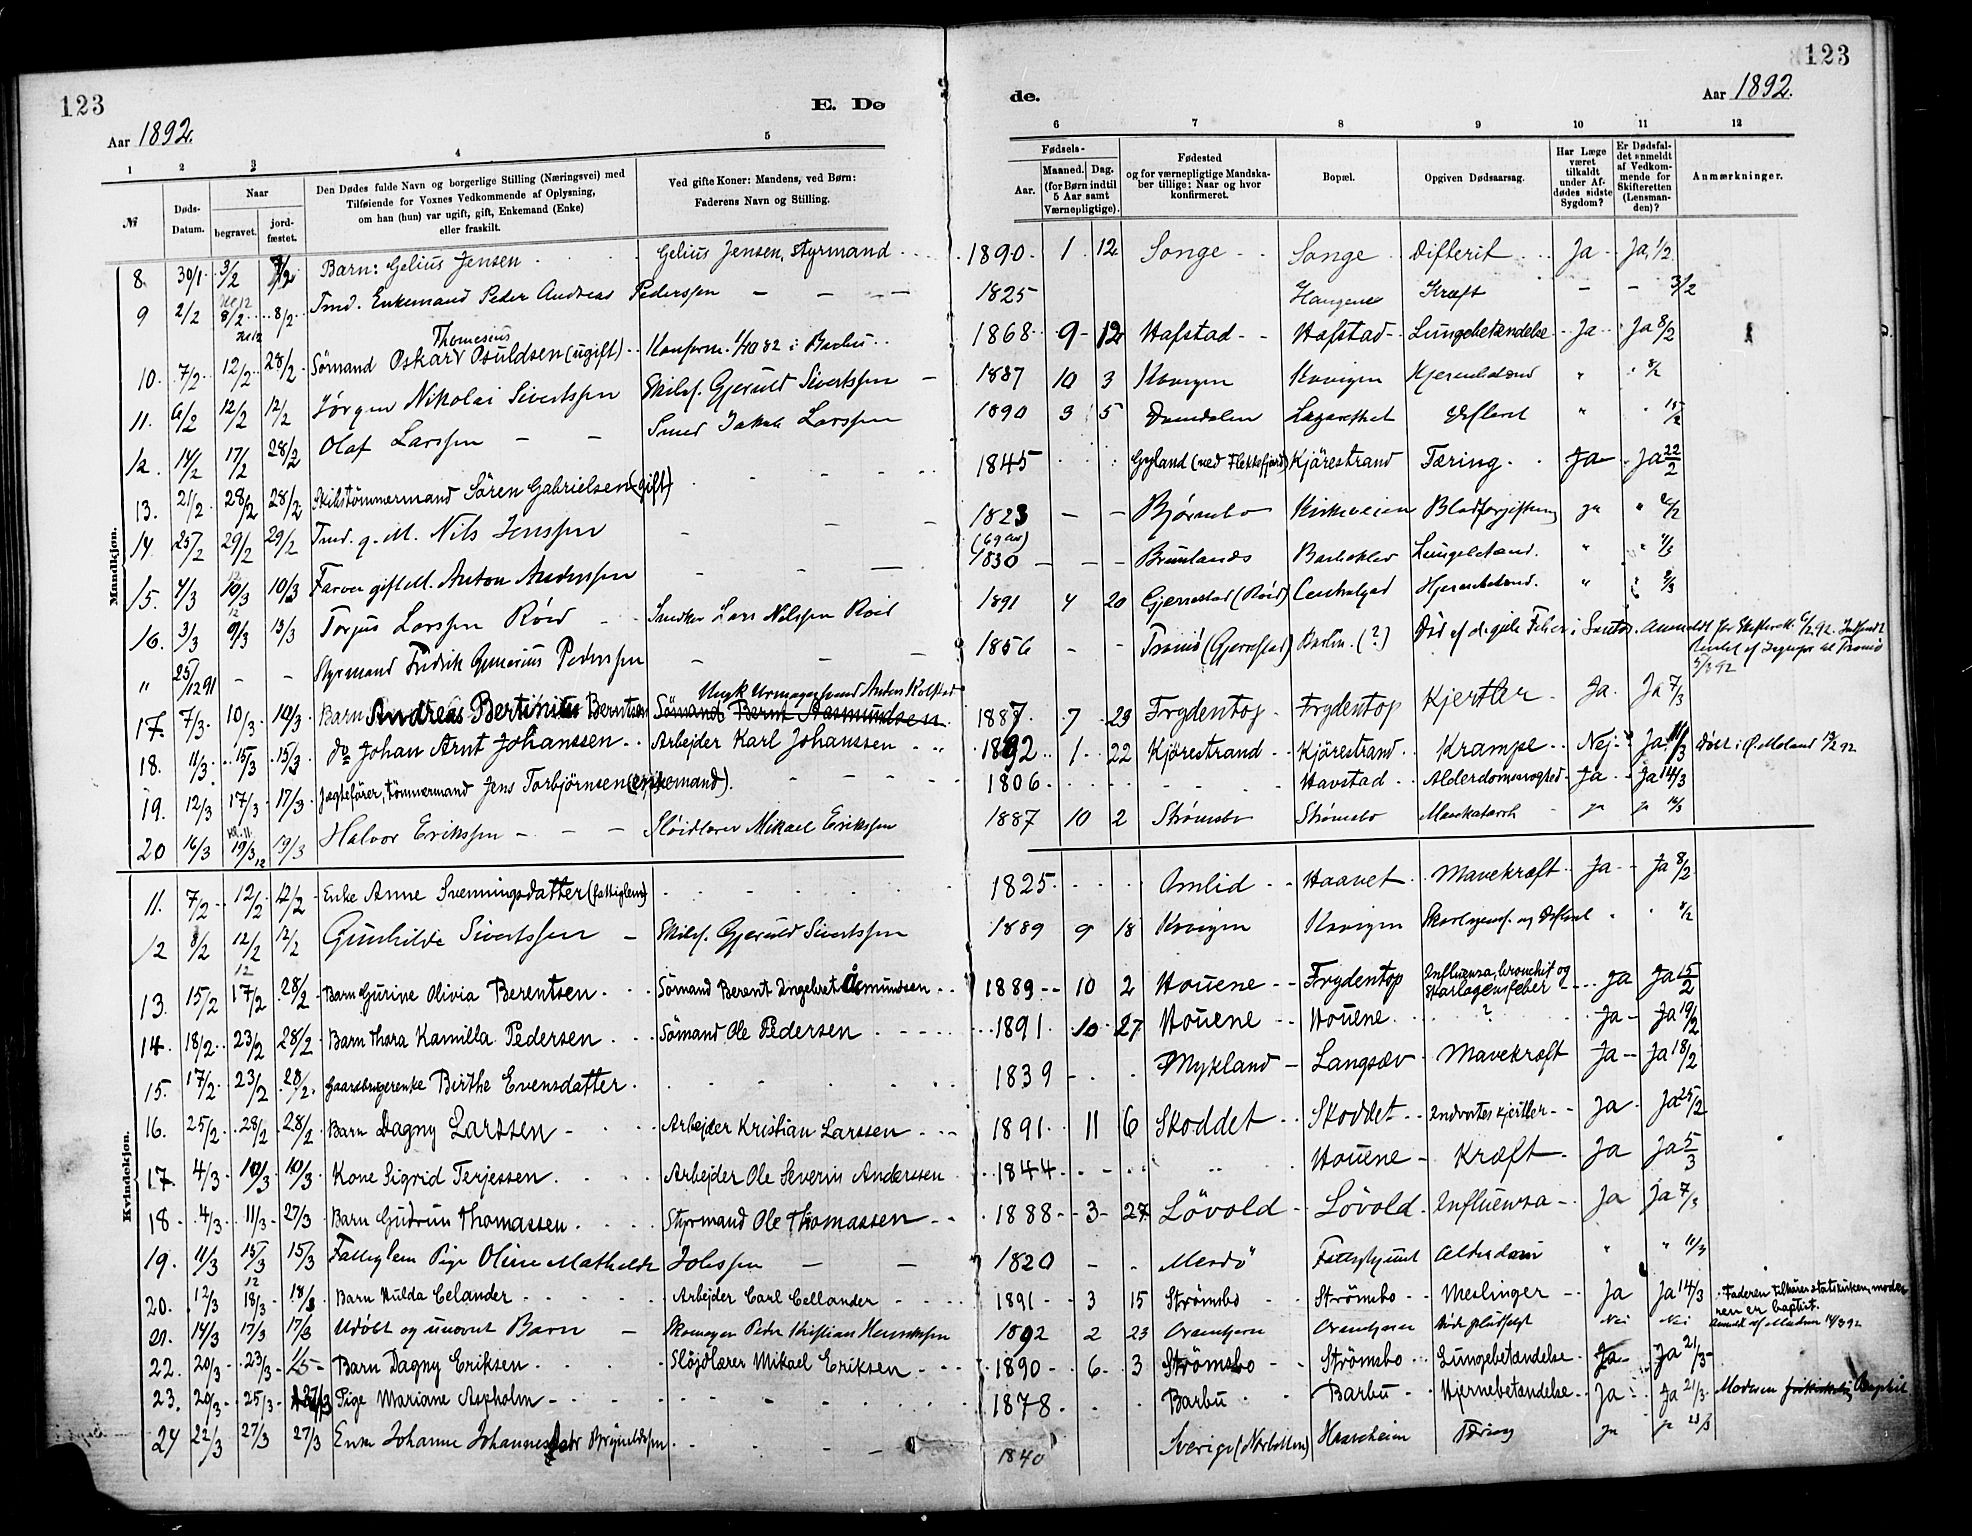 123
E. Dø
de.
123
Aar 1892.
Aar 1892.
1 2 3 4 5 6 7 8 9 10 11 12
№
Døds-Datum.
Naar
begravet.
jord-fæstet.
Den Dødes fulde Navn og borgerlige Stilling (Næringsvei) med
Tilføiende for Voxnes Vedkommende af Oplysning,
om han (hun) var ugift, gift, Enkemand (Enke)
eller fraskilt.
Ved gifte Koner: Mandens, ved Børn:
Faderens Navn og Stilling.
Fødsels-
Aar.
Maaned. Dag.
(for Børn indtil
5 Aar samt
Værnepligtige).
Fødested
og for værnepligtige Mandska-
ber tillige: Naar og hvor
konfirmeret.
Bopæl.
Opgiven Dødsaarsag.
Har Læge
været
tilkaldt
under Af-
dødes sidste
Sygdom?
Er Dødsfal-
det anmeldt
af Vedkom-
mende for
Skifteretten
(Lensman-
den)?
Anmærkninger.
Mandkjøn.
8 30/1 3/2 Barn: Gelius Jensen Gelius Jensen, Styrmand 1890 1 12 Songe Songe Difterit Ja Ja 1/2
9 2/2 8/2 8/2 Tmd. Enkemand Peder Andreas Pederssen 1825 Kræft 3/2
10. 7/2 12/2 28/2 Sömand Oskar Thomesius Osuldsen (ugift) Konform. 1/10 82 i Barbu 1868 9 12 Hafstad Hafstad Lungebetændelse Ja Ja 8/2
11. 6/2 12/2 12/2 Jørgen Nikolai Sivertssen Gjeruld Sivertssen 1887 10 3 Krøigen Krøigen " " 8/2
12. 14/2 17/2 28/2 Olaf Larssen Smed Jakob Larssen 1890 3 5 Lazarethet Difterit " " 15/2
13. 21/2 28/2 28/2 Skibstömmermand Sören Gabrielsen (gift) 1845 Gyland (ved Flekkefjord) Kjärestrand Tæring Ja Ja 22/2
14. 25/2 29/2 29/2 Tmd. g. M. Nils Jenssen 1823 (69 aar) Bjørnebo Kirkeveien Blodforgiftning ja "
15. 4/3 10/3 10/3 Farver gift M. Anton Anderssen 1830 Lungebetænd. " "
16. 3/3 9/3 13/3 Torjus Larssen Röid Lars Nilssen Röid 1891 4 20 Gjerrestad (Röid) Hjernebetænd. "
" 25/12 91 Styrmand Fredrik Gunerius Pederssen 1856 Tromö (Gjerrestad) Barbu. (?) Død af de gule Feber i Santos.
17. 7/3 10/3 10/3 Barn Andreas Bertinius Berntsen Sömand Bernt Aasmundsen 1887 7 29 Frydentop Frydentop Kjertler Ja Ja 7/3
18. 11/3 15/3 15/3 do Johan Arnt Johanssen Arbejder Karl Johanssen 1892 1 22 Kjörestrand Kjörestrand Krampe Nej Ja 11/3 Döbt i Ø. Moland
19. 12/3 17/3 17/3 Jagtefører, tömmermand Jens Torbjörnsen (enkemand). 1806 Havstad Alderdomssvaghed Ja Ja 14/3
20 16/3 19/3 19/3 Halvor Erikssen Slöidlærer Mikael Erikssen 1887 10 2 Strömsbo Strömsbo Mavekatarrh ja ja 16/3
Kvindekjøn.
11. 7/2 12/2 12/2 Enke Anne Svenningsdatter (fattiglem) 1825 Omlid Haavet Mavekræft Ja Ja 8/2
12 8/2 12/2 12/2 Gunhilde Sivertssen Gjeruld Sivertssen 1889 9 18 Krøigen Krøigen " " 8/2
13. 15/2 17/2 28/2 Barn Gurine Olivia Berentsen Sömand Berent Ingebret Åsmundsen 1889 10 2 Houene Frydentop Influensa, bronchit og Skarlagensfeber ja Ja 15/2
14. 18/2 23/2 28/2 Barn Thora Kamilla Pedersen Sömand Ole Pedersen 1891 10 27 Houene Houene ? Ja Ja 19/2
15. 17/2 23/2 28/2 Gaardbrugerenke Birthe Evensdatter 1839 Mykland Langsæv Mavekræft Ja Ja 18/2
16. 25/2 28/2 28/2 Barn Dagny Larssen Arbejder Kristian Larssen 1891 11 6 Skoddet Skoddet Indvortes kjertler Ja Ja 25/2
17. 4/3 10/3 10/3 Kone Sigrid Terjessen Arbejder Ole Severin Anderssen 1844 Houene Kræft Ja Ja 5/3
18 4/3 11/3 27/3 Barn Gudrun Thomassen Styrmand Ole Thomassen 1888 3 27 Lövold Lövold Influensa Ja Ja 7/3
19. 11/3 15/3 15/3 Fattiglem Pige Oline Mathilde Johssen 1820 Merdö " " 11/3
20. 12/3 18/3 18/3 Barn Hulda Celander Arbejder Carl Cellander 1891 3 15 Strömsbo Strömsbo Meslinger Ja Ja 14/3 Faderen tilhører statskirken, moderen er baptist.
21. 14/3 17/3 17/3 Udöbt og unævnt Barn Skomager Peder Kristian Henrikssen 1892 2 23 Nei Nei
22. 20/3 23/3 Barn Dagny Eriksen Slöjdlærer Mikael Eriksen 1890 6 3 Strömsbo Strömsbo Lungebetændelse Ja Ja 21/3
23. 20/3 25/3 27/3 Pige Mariane Aspholm 1878 Barbu Barbu Hjernebetændelse Ja Ja 21/3 Moderen Baptist
24 22/3 27/3 27/3 Enke Johanne 1840 Sverige (Norbotten) Tæring ja ja